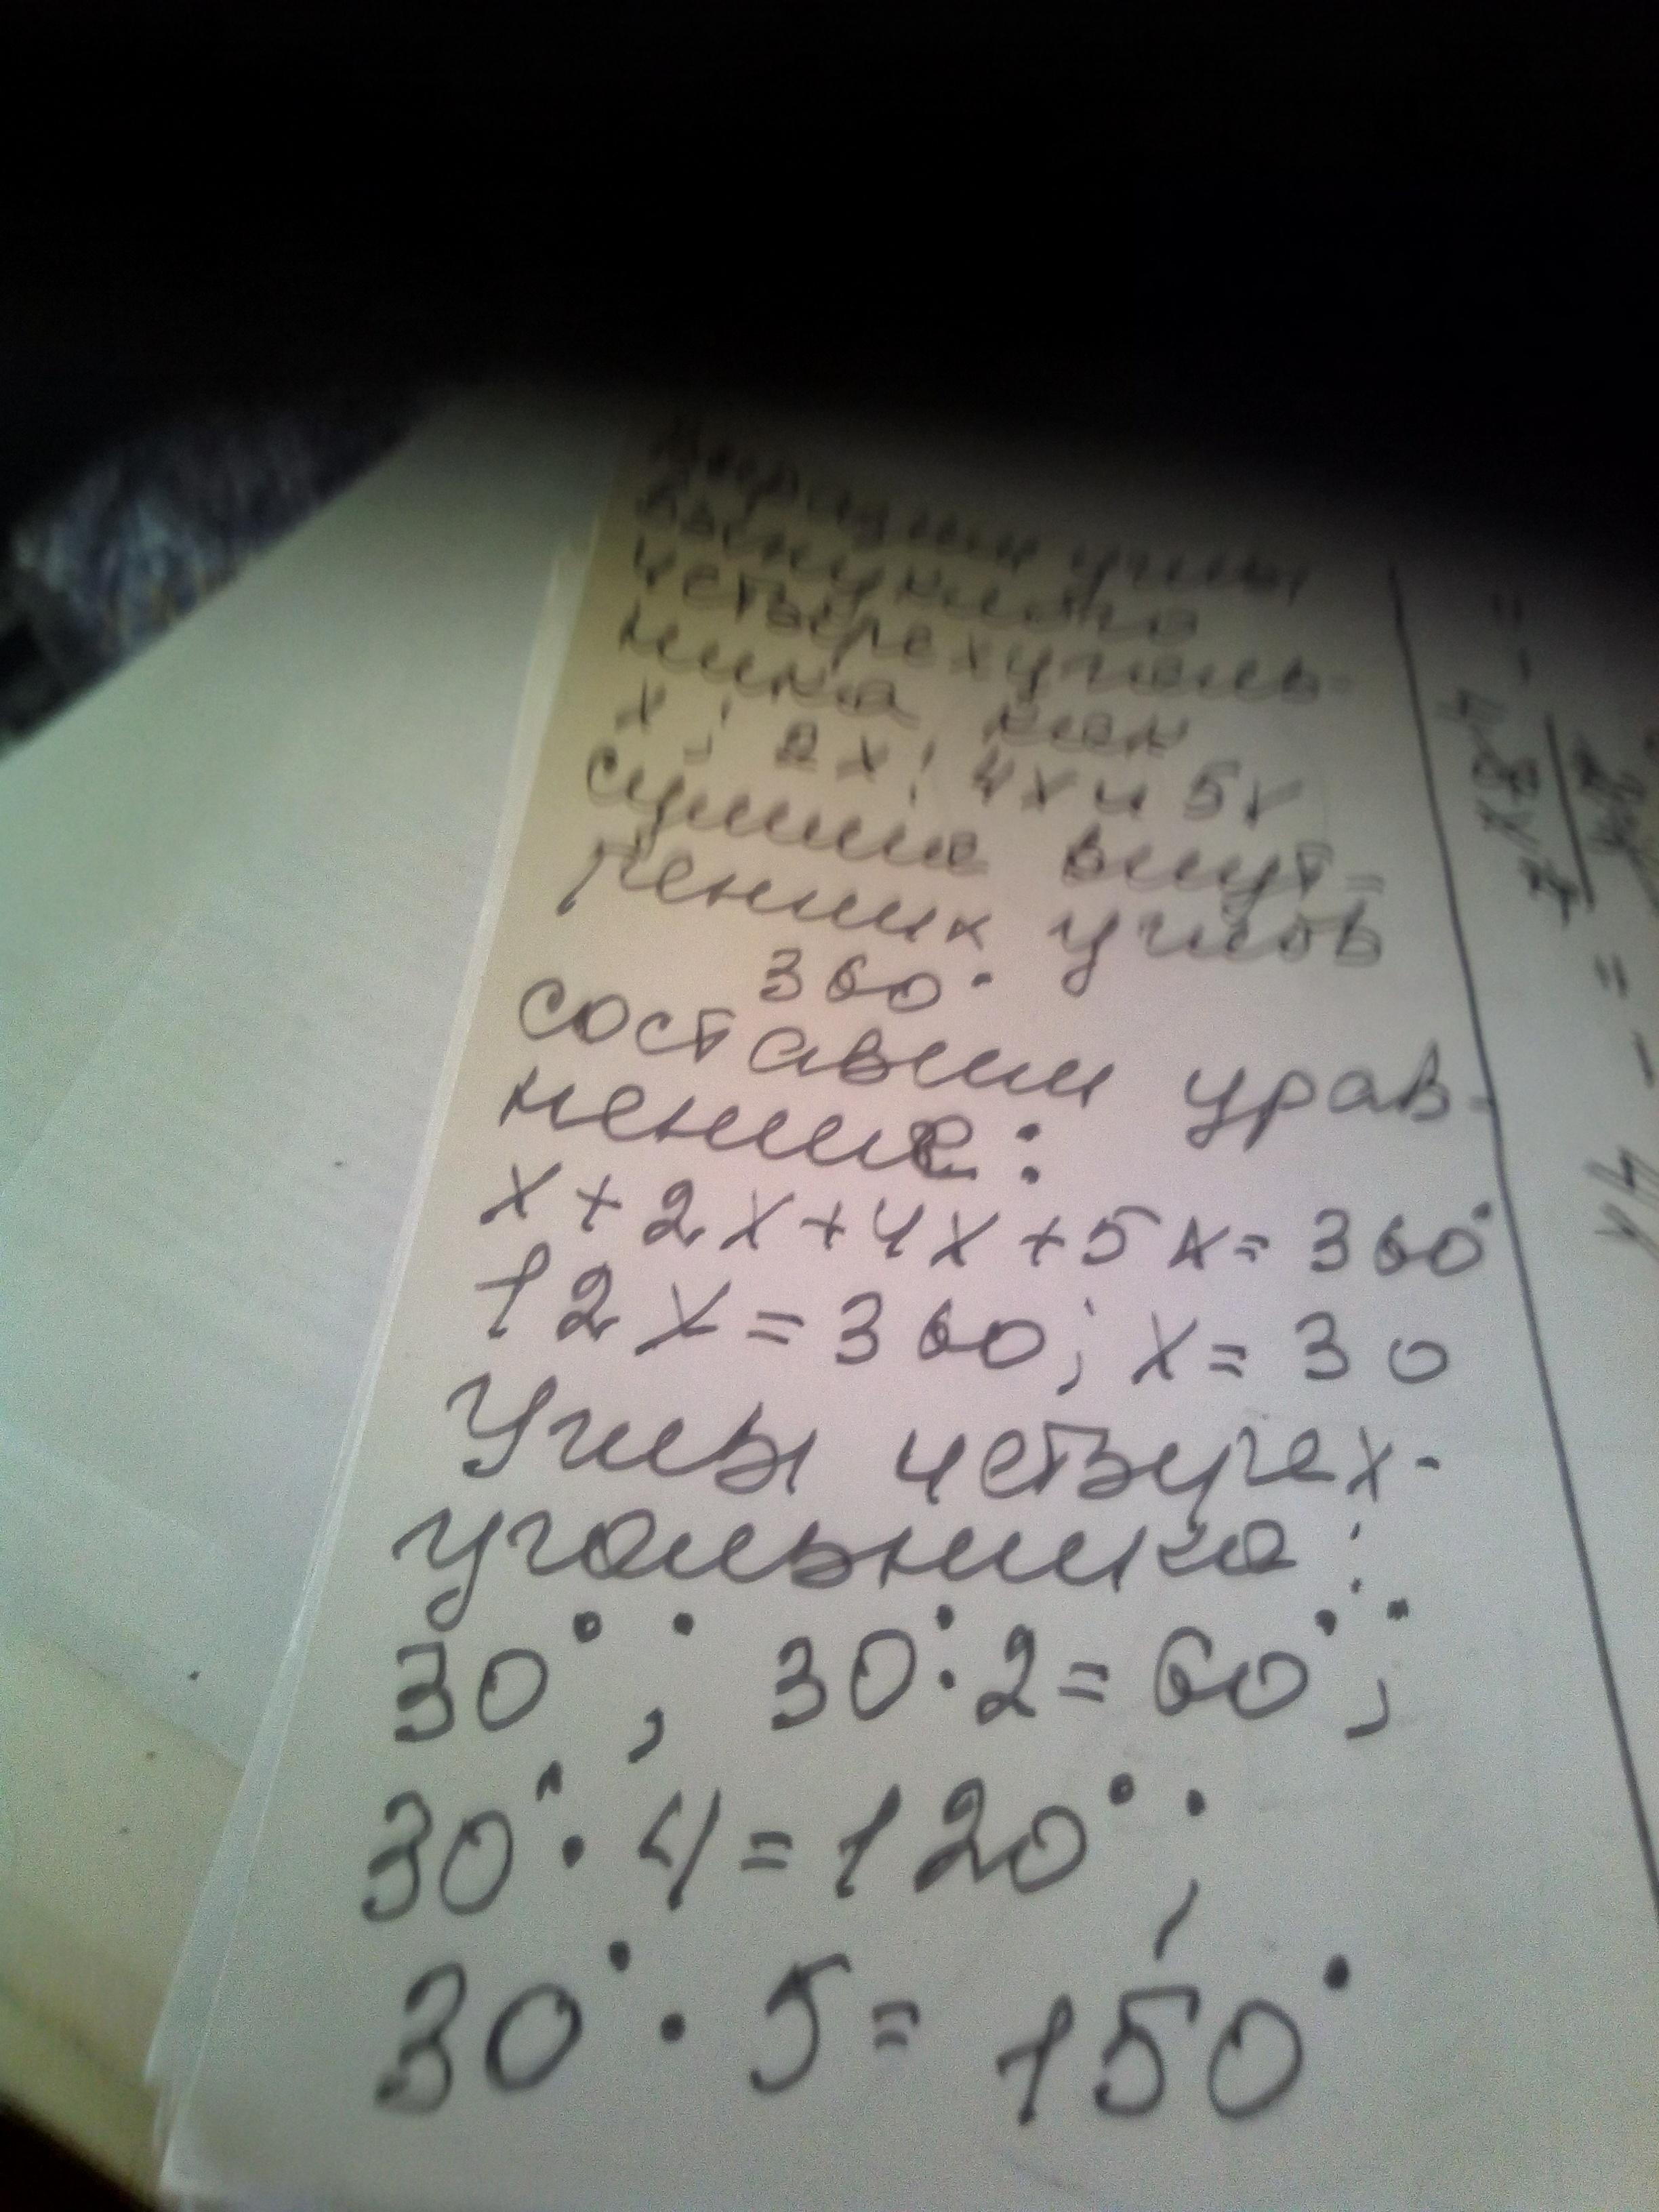 Выразим углы
выпуклого
четырехуголь-
ника как
x; 2x; 4x и 5x
сумма внут=
ренних углов
360°
составим урав-
нение:
x+2x+4x+5x=360°
12x=360; x=30
Углы четырех-
угольника:
30°; 30°·2=60°;
30°·4=120°;
30°·5=150°